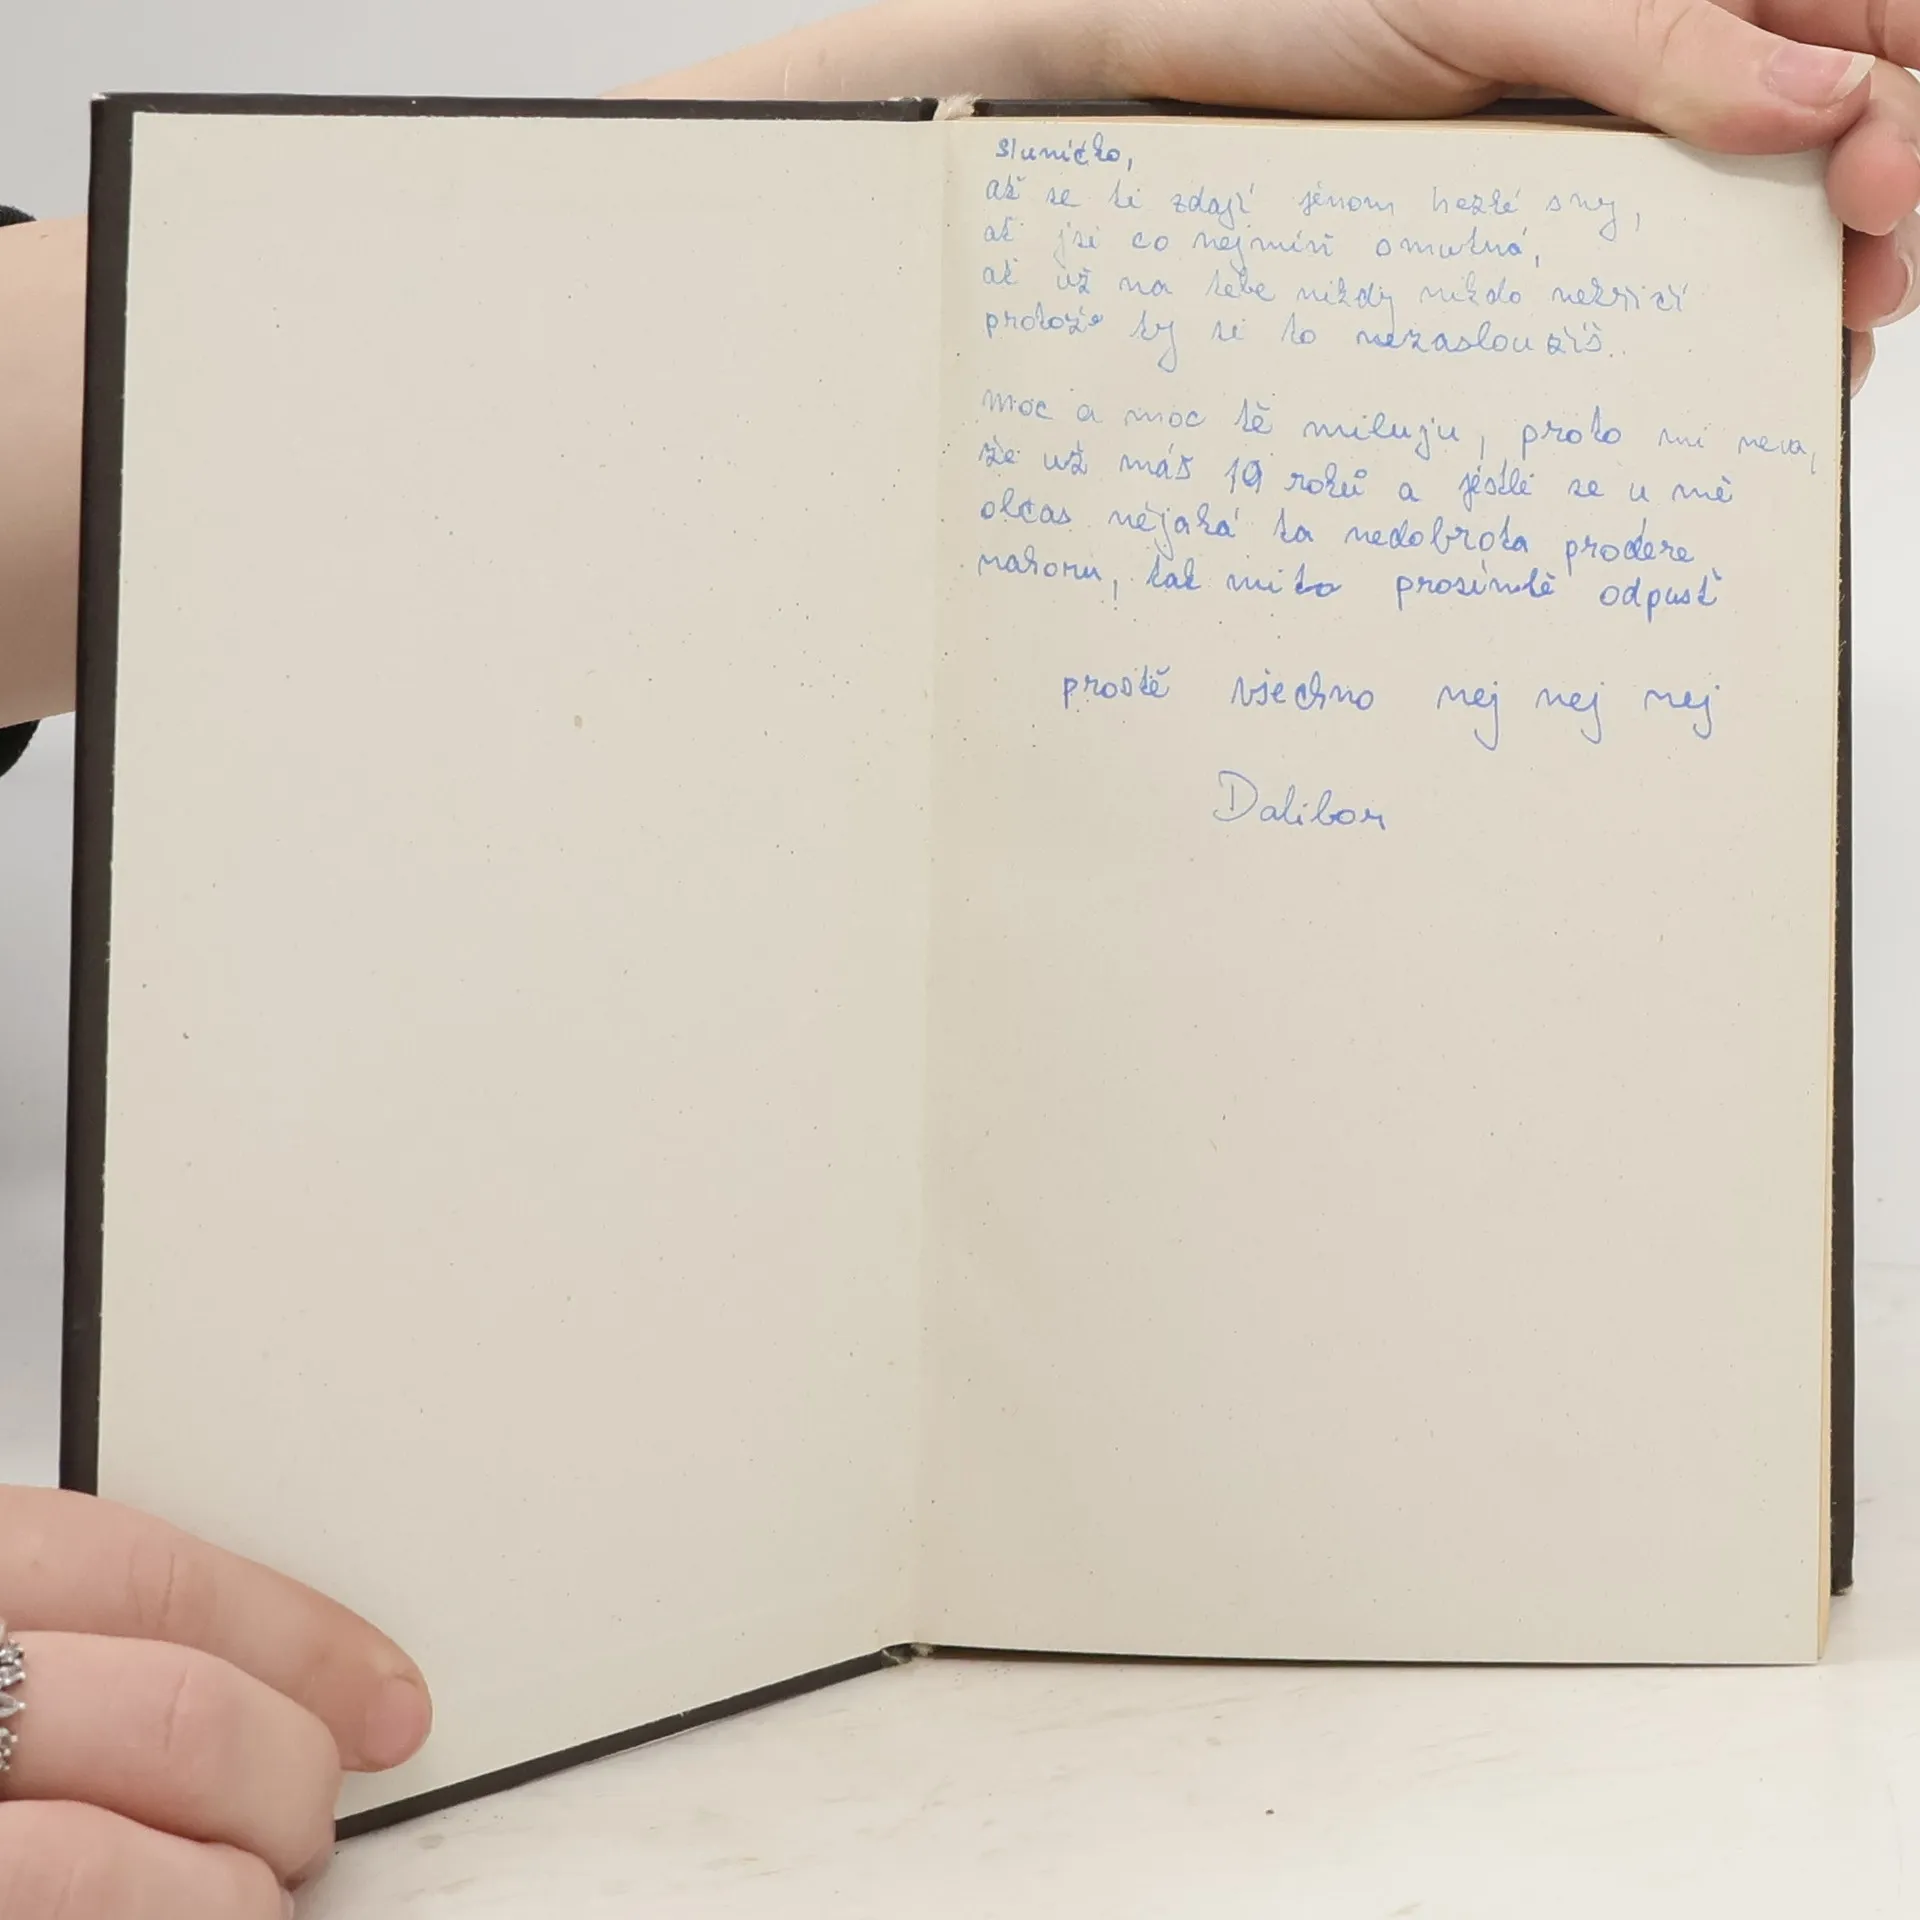 sluníčko,
ať se ti zdají jenom hezké sny,
ať jsi co nejmíň smutná,
ať už na tebe nikdy nikdo nekřičí
protože ty si to nezasloužíš.
moc a moc tě miluju, proto mi neva,
že už máš 19 roků a jestli se u mě
občas nějaká ta nedobrota prodere
nahoru, tak mi to prosímtě odpusť
prostě všechno nej nej nej
Dalibor